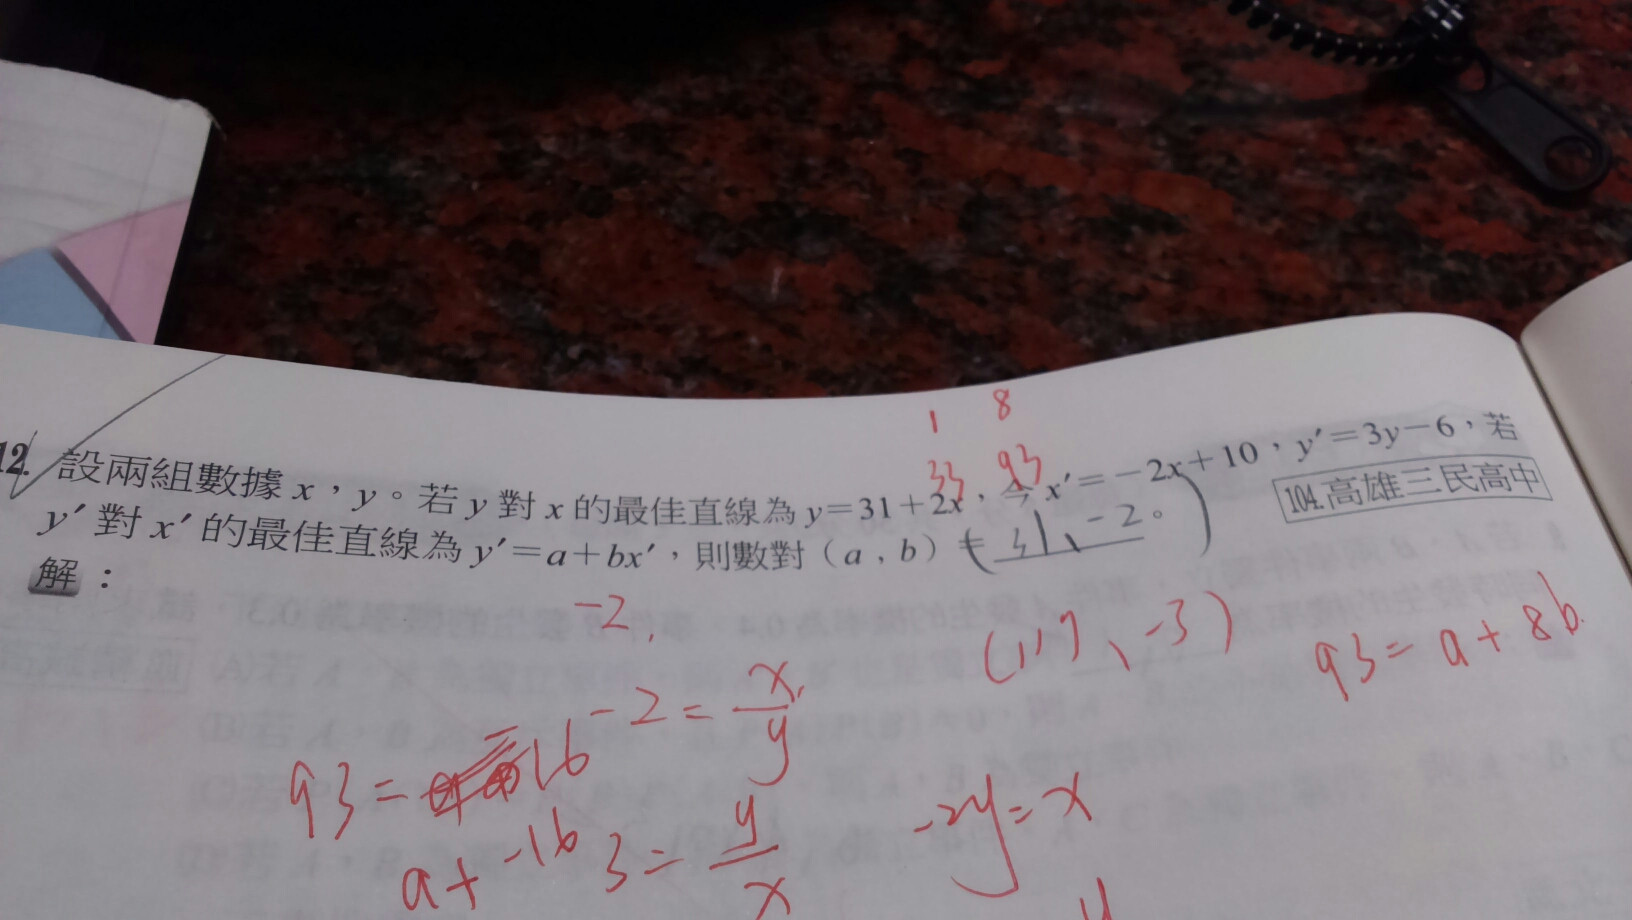 1 8
33 93
12. 設兩組數據 x，y。若 y 對 x 的最佳直線為 y=31+2x，令 x′=−2x+10，y′=3y−6，若
y′ 對 x′ 的最佳直線為 y′=a+bx′，則數對（a , b）= (31、-2。)
104.高雄三民高中
解：
-2,
(117、-3)
93= a+8b
-2= x/y
93= 16
-2y=x
a+ -16
3= y/x
y